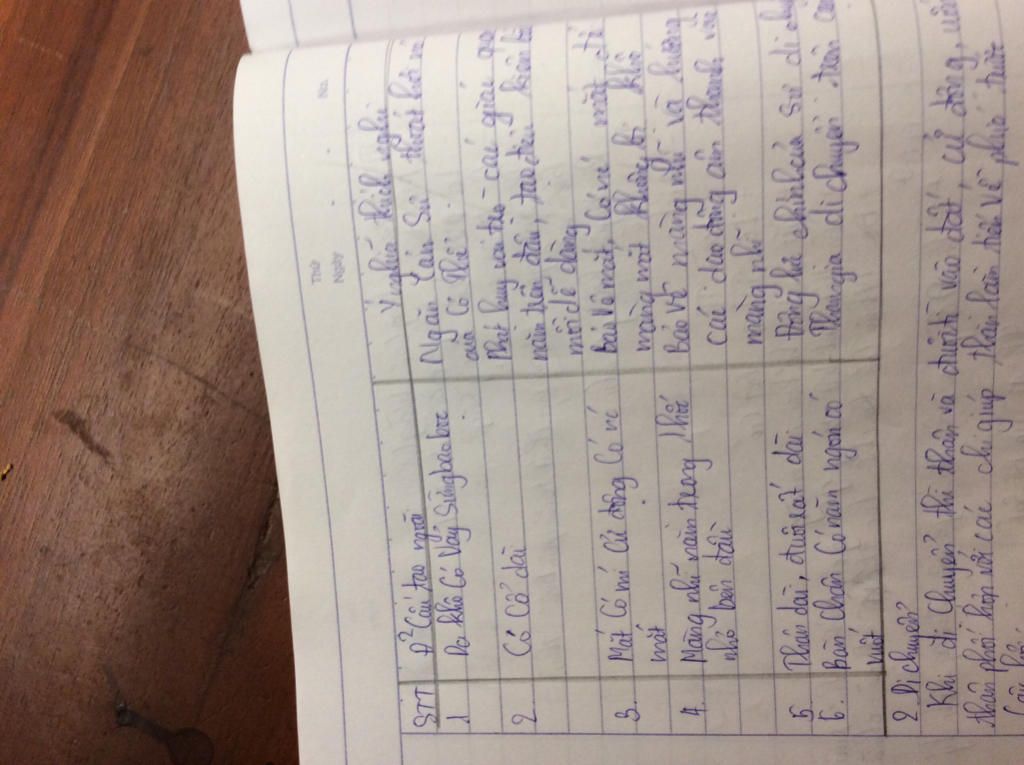 Thứ
Ngày
No.
STT Đ² Cấu tạo ngoài Ý nghĩa thích nghi
1 Da khô Có Vảy Sừng bao bọc Ngăn Cản Sự thoát hơi nước
của Cơ thể
2 Có Cổ dài Phát huy vai trò các giác qua
nằm trên đầu, tạo điều kiện bắt
mồi dễ dàng
3. Mắt Có mí Cử động Có nước Bảo Vệ mắt, Có nước mắt để
mắt màng mắt không bị khô
4. Màng nhĩ nằm trong 1 hốc Bảo Vệ màng nhĩ và hướng
nhỏ bên đầu Các dao động âm thanh vào
màng nhĩ
5 Thân dài, đuôi rất dài Động lực chính của Sự di chuy
6. bàn chân Có năm ngón có Tham gia di chuyển trên cạn
vuốt
2 Di chuyển?
Khi di Chuyển thì thân và đuôi tì vào đất, cử động, uốn
thân phối hợp với các chi giúp thằn lằn tiến Về phía trước
Câu hỏi